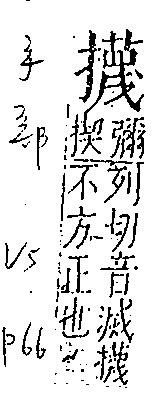 㩢
彌列切音滅㩢
揳不方正也
手部 V5 p66